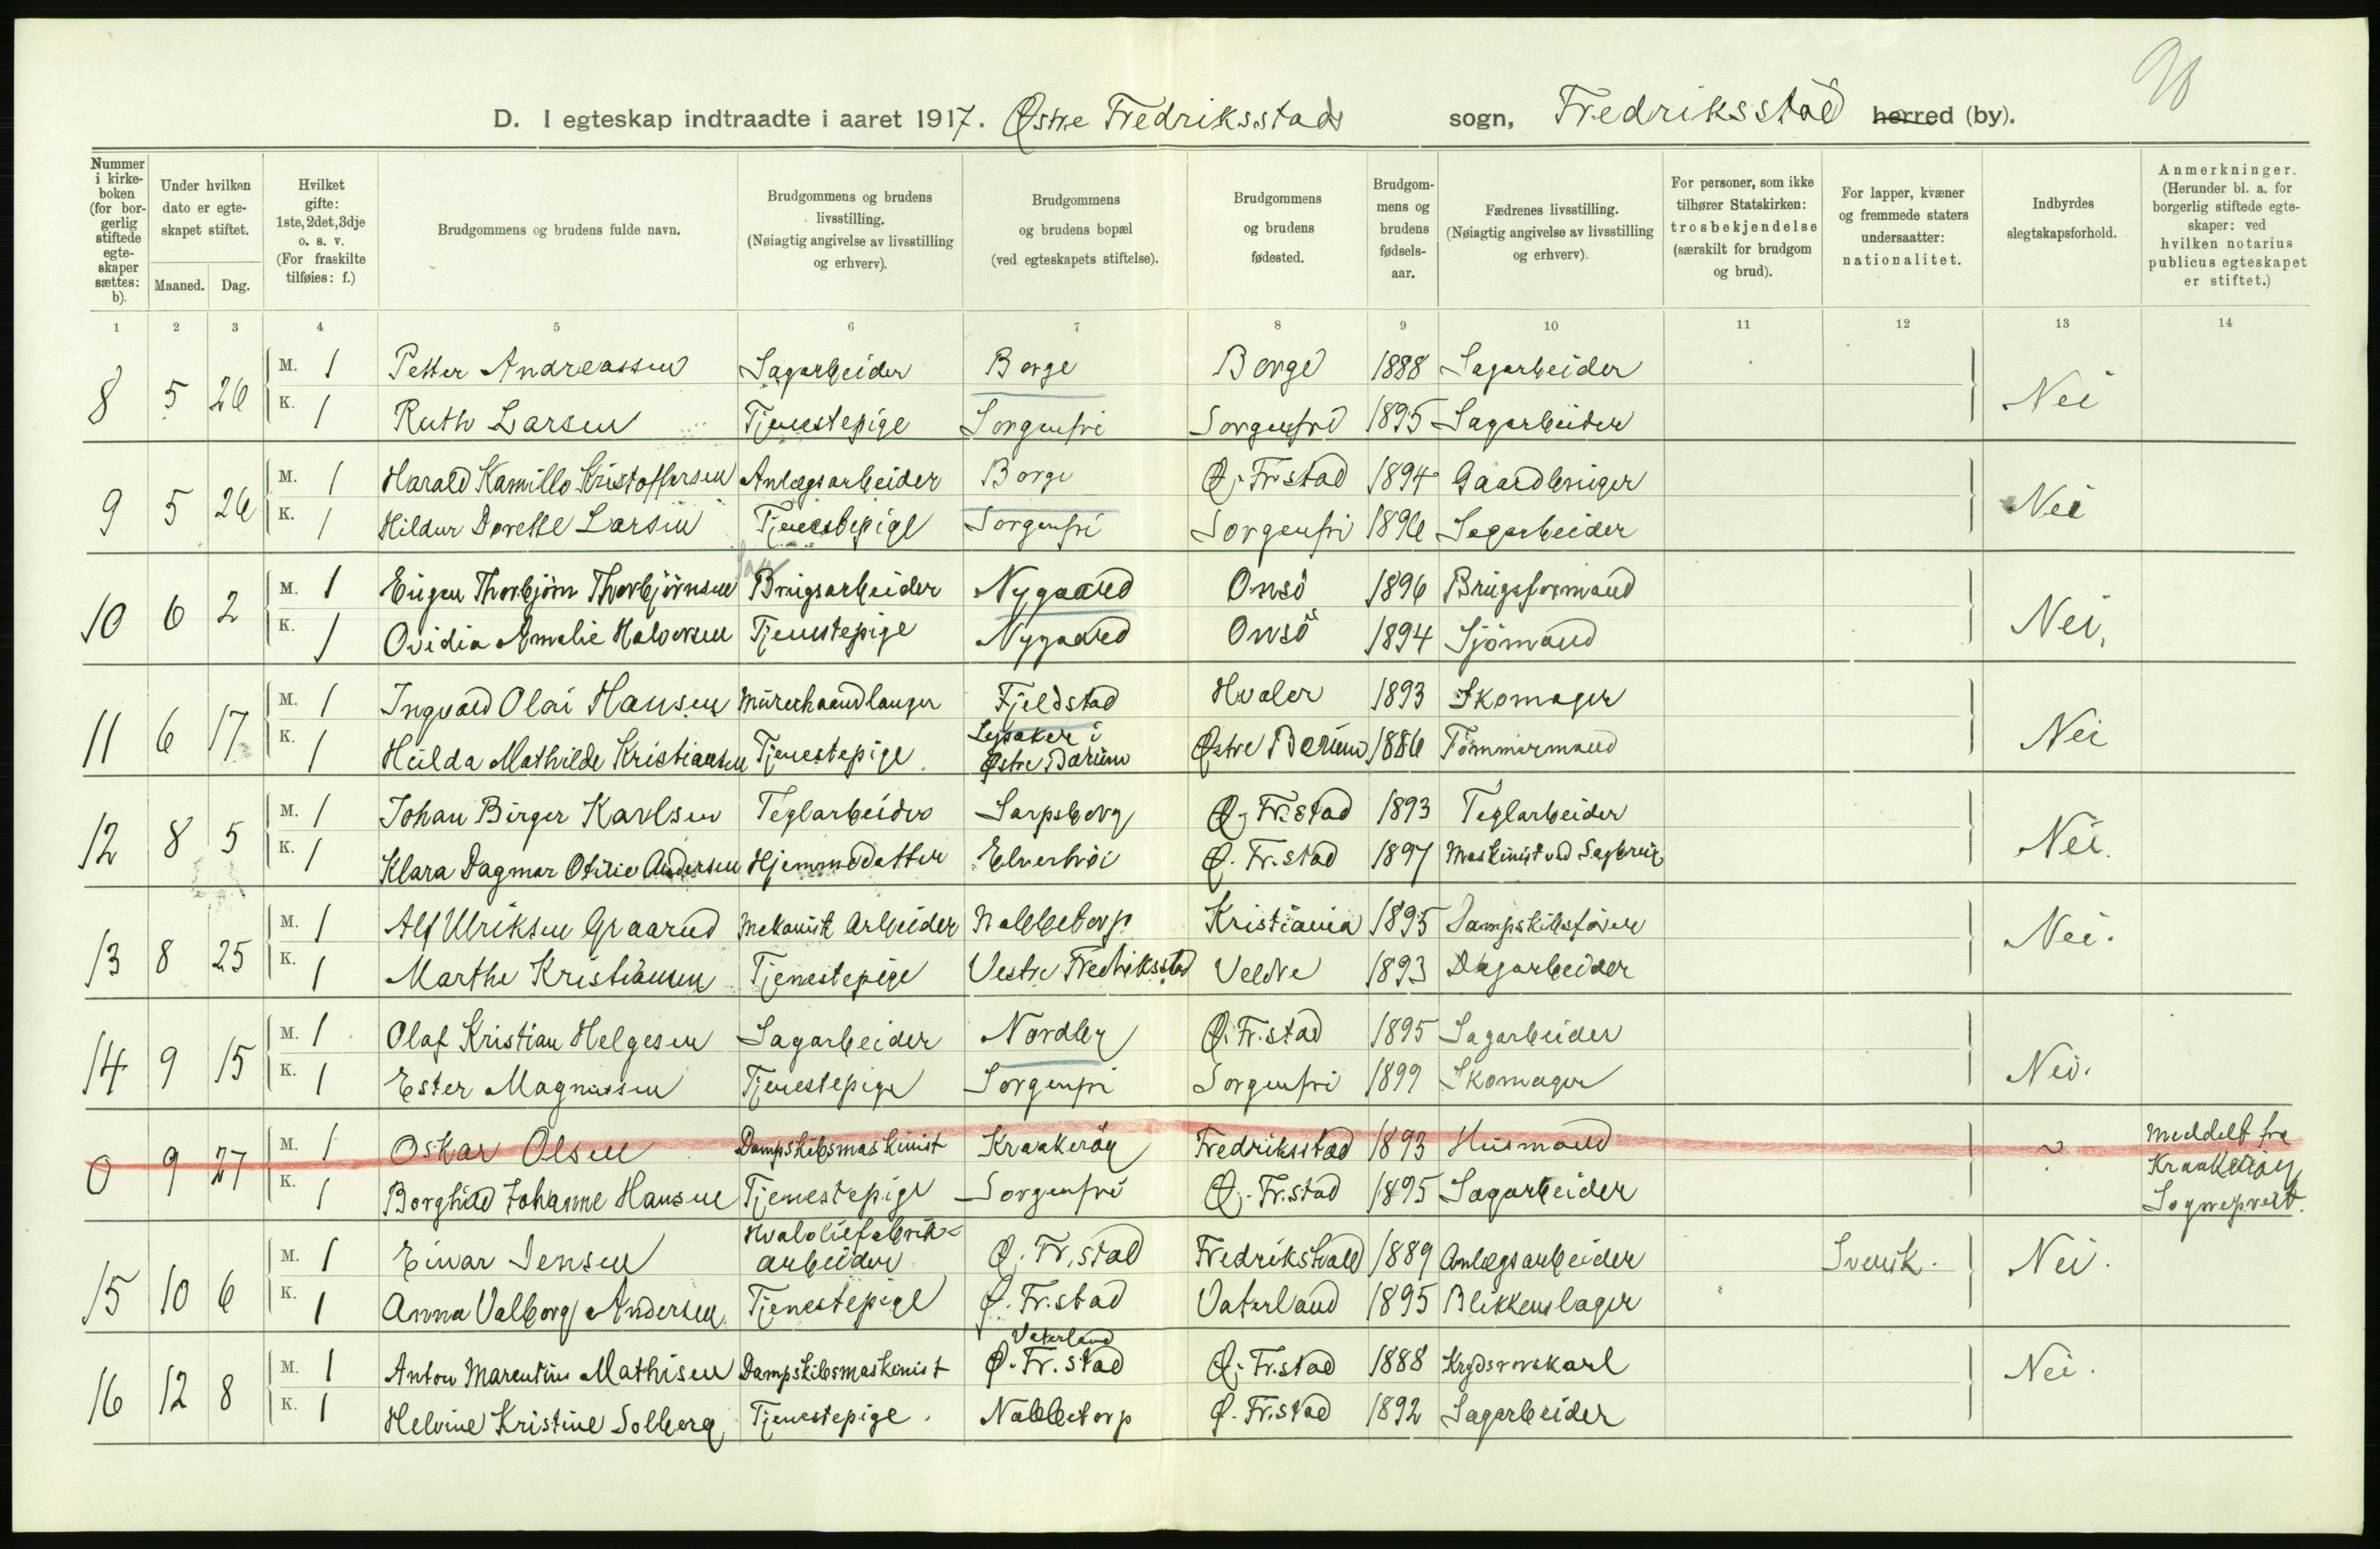 D. I egteskap indtraadte i aaret 1917. Østre Fredriksstads sogn, Fredriksstad herred (by).
Nummer i kirkeboken (for borgerlig stiftede egteskaper sættes: b).
Under hvilken dato er egteskapet stiftet. Maaned. Dag.
Hvilket gifte: 1ste, 2det, 3dje o. s. v. (For fraskilte tilføies: f.)
Brudgommens og brudens fulde navn.
Brudgommens og brudens livsstilling. (Nøiagtig angivelse av livsstilling og erhverv).
Brudgommens og brudens bopæl (ved egteskapets stiftelse).
Brudgommens og brudens fødested.
Brudgommens og brudens fødselsaar.
Fædrenes livsstilling. (Nøiagtig angivelse av livsstilling og erhverv).
For personer, som ikke tilhører Statskirken: trosbekjendelse (særskilt for brudgom og brud).
For lapper, kvæner og fremmede staters undersaatter: nationalitet.
Indbyrdes slegtskapsforhold.
Anmerkninger. (Herunder bl. a. for borgerlig stiftede egteskaper: ved hvilken notarius publicus egteskapet er stiftet.)
1 2 3 4 5 6 7 8 9 10 11 12 13 14
8 5 26 M. 1 Petter Andreassen Sagarbeider Borge Borge 1888 Sagarbeider Nei
K. 1 Ruth Larsen Tjenestepige Sorgenfri Sorgenfri 1895 Sagarbeider
9 5 26 M. 1 Harald Kamillo Kristoffersen Anlægsarbeider Borge Ø. Fr.stad 1894 Gaardbruger Nei
K. 1 Hildur Dorette Larsen Tjenestepige Sorgenfri Sorgenfri 1896 Sagarbeider
10 6 2 M. 1 Eugen Thorbjørn Thorbjörnsen Brugsarbeider Nygaard Onsö 1896 Brugsformand Nei.
K. 1 Ovidia Amalie Halvorsen Tjenestepige Nygaard Onsö 1894 Sjömand
11 6 17 M. 1 Ingvald Olai Hansen Murerhaandlanger Fjeldstad Hvaler 1893 Skomager Nei
K. 1 Hilda Mathilde Kristiansen Tjenestepige. Lysaker i Østre Bærum Østre Bærum 1886 Tömmermand
12 8 5 M. 1 Johan Birger Karlsen Teglarbeider Sarpsborg Ø. Fr.stad 1893 Teglarbeider Nei.
K. 1 Klara Dagmar Otilie Andersen Hjemmedatter Elverhöi Ø. Fr.stad 1897 Maskinist ved Sagbrug
13 8 25 M. 1 Alf Ulriksen Graarud Mekanisk Arbeider Nabbetorp Kristiania 1895 Dampskibsförer Nei.
K. 1 Marthe Kristiansen Tjenestepige Vestre Fredriksstad Veldre 1893 Dagarbeider
14 9 15 M. 1 Olaf Kristian Helgesen Sagarbeider Nordby Ø. Fr.stad 1895 Sagarbeider Nei.
K. 1 Ester Magnussen Tjenestepige Sorgenfri Sorgenfri 1899 Skomager
0 9 27 M. 1 Oskar Olsen Dampskibsmaskinist Kraakeröy Fredriksstad 1893 Husmand ? Meddelt fra Kraakeröy Sogneprest.
K. 1 Borghild Johanne Hansen Tjenestepige Sorgenfri Ø. Fr.stad 1895 Sagarbeider
15 10 6 M. 1 Einar Jensen Hvaloliefabrikarbeider Ø. Fr.stad Fredrikshald 1889 Anlægsarbeider Svensk. Nei.
K. 1 Anna Valborg Andersen Tjenestepige Ø. Fr.stad Vaterland 1895 Blikkenslager
16 12 8 M. 1 Anton Marentius Mathisen Dampskibsmaskinist Vaterland Ø. Fr.stad Ø. Fr.stad 1888 Nei.
K. 1 Helvine Kristine Solberg Tjenestepige. Nabbetorp Ø. Fr.stad 1892 Sagarbeider